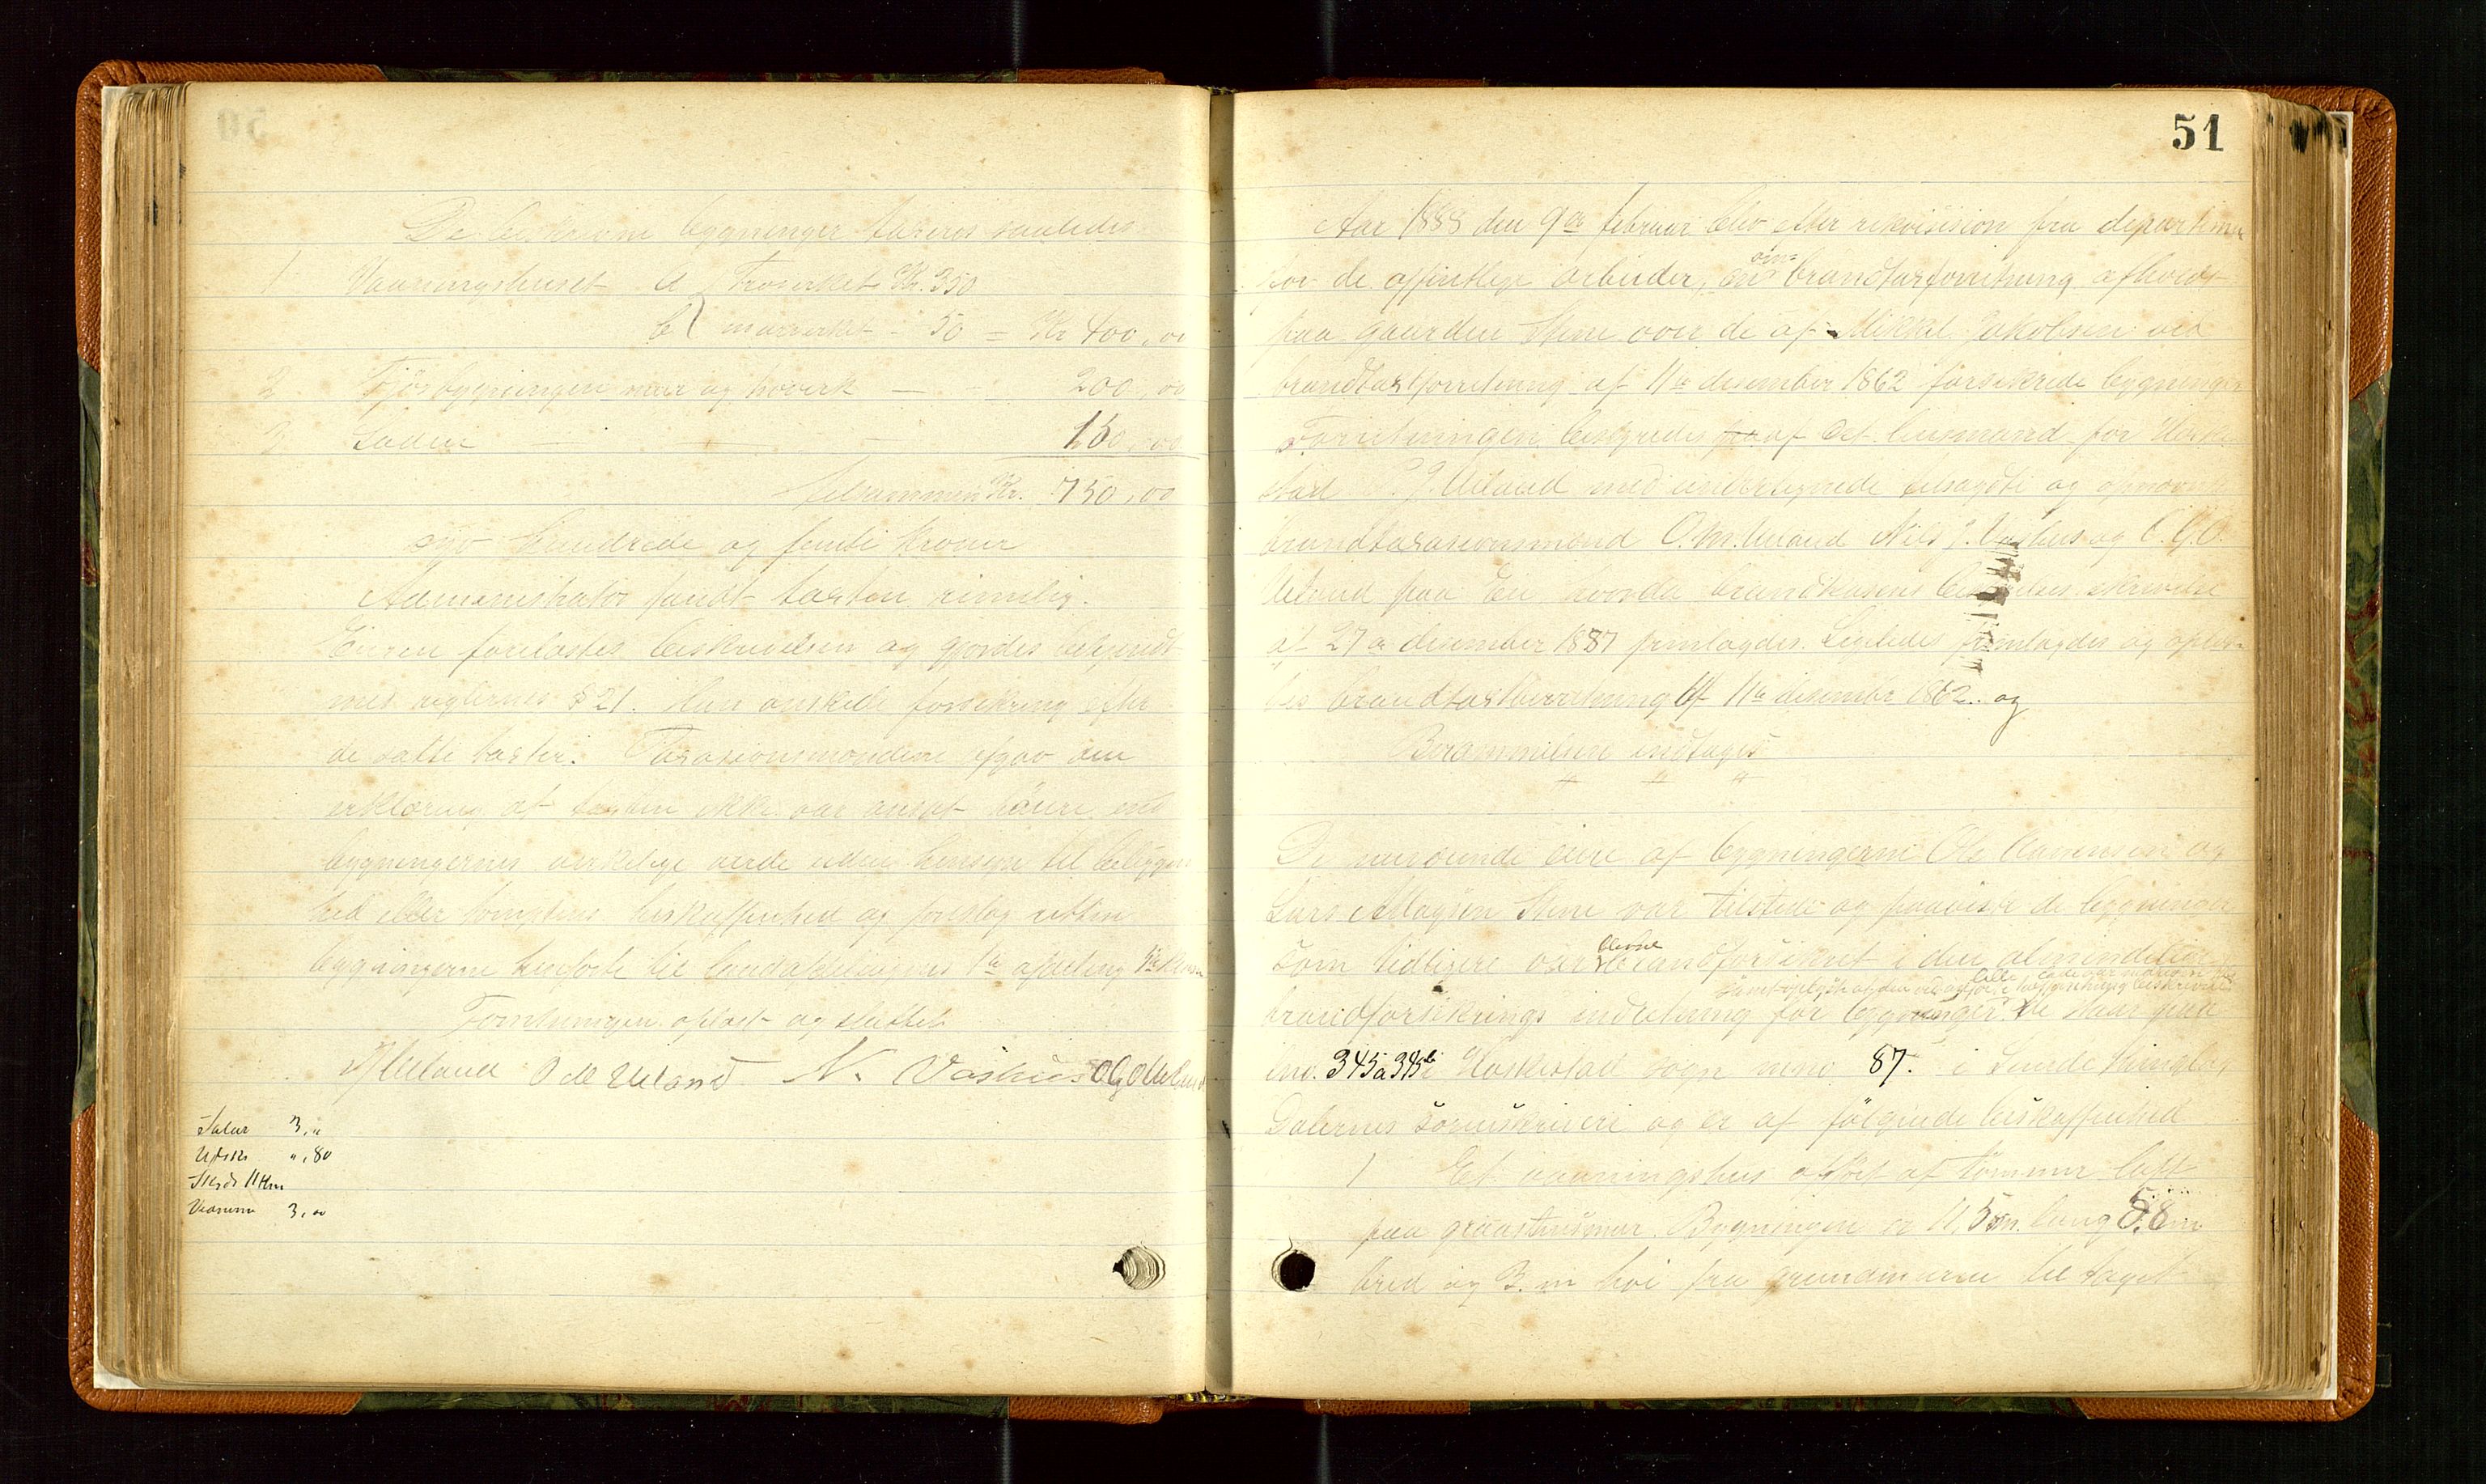 De beskrevne bygninger taxeres saaledes
1 Vaaningshuset a Træverket Kr. 350
b murverket - 50 = Kr 400,00
2. Fjøsbygningen mur og træverk — - 200,00
3 Laden — — - 150,00
tilsammen Kr. 750,00
syv hundrede og femti kroner
Administrator fandt taxten rimelig.
Eieren forelæstes beskrivelsen og gjordes bekjendt
med reglernes § 21. Han ønskede forsikring efter
de satte taxter. Taxasionsmændene afgav den
erklæring at taxten ikke var ansat høiere end
bygningernes verkelige verde uden hensyn til beliggen
hed eller tomtens beskaffenhed og forslog retten
bygningerne henført til landafdelingens 1te afdeling 1te klasse
Forretningen oplæst og sluttet
PJ Ueland O M Ueland N. Vashus OGO Ueland
Salær 3,"
Udskr ",80
Skyds 11 Km
Mænnene 3,00
51
Aar 1888 den 9de februar blev efter rekvisision fra departemen
for de offentlige arbeider, en om- brandtaxforretning afholdt
paa gaarden Skene over de af Mikkel Jakobsen ved
brandtaxtforretning af 11te desember 1862 forsikrede bygninger
Forretningen bestyredes af lensmand for Heske
stad P. J. Ueland med undertegnede tilsagdte og opnævnte
brandtaxasionsmænd O. M. Ueland Nils J. Vashus og O. G. O.
Ueland paa en hvorda brandkasens skrivelse
af 27de desember 1887 fremlagdes. Ligeledes fremlagdes og oplæs-
tes brandtaxtforretning af 11te desember 1862. og
Berammelsen indtages
" " "
De nuværende eiere af bygningerne Ole Aanensen og
Lars Atlagsen Skene var tilstede og paaviste de bygninger
som tidligere var blevne brandforsikret i den almindelige
brandforsikrings indretning for bygninger. De staar paa
lno. 345a 345b i Heskestad sogn mno 87. i Lunde thinglag
Dalernes sorenskriveri og er af følgende beskaffenhed
1 Et vaaningshus opført af tømmer laft
paa graastensmur. Bygningen er 11,5 m. lang 5,8 m
bred og 3. m høi fra grundmuren til taget